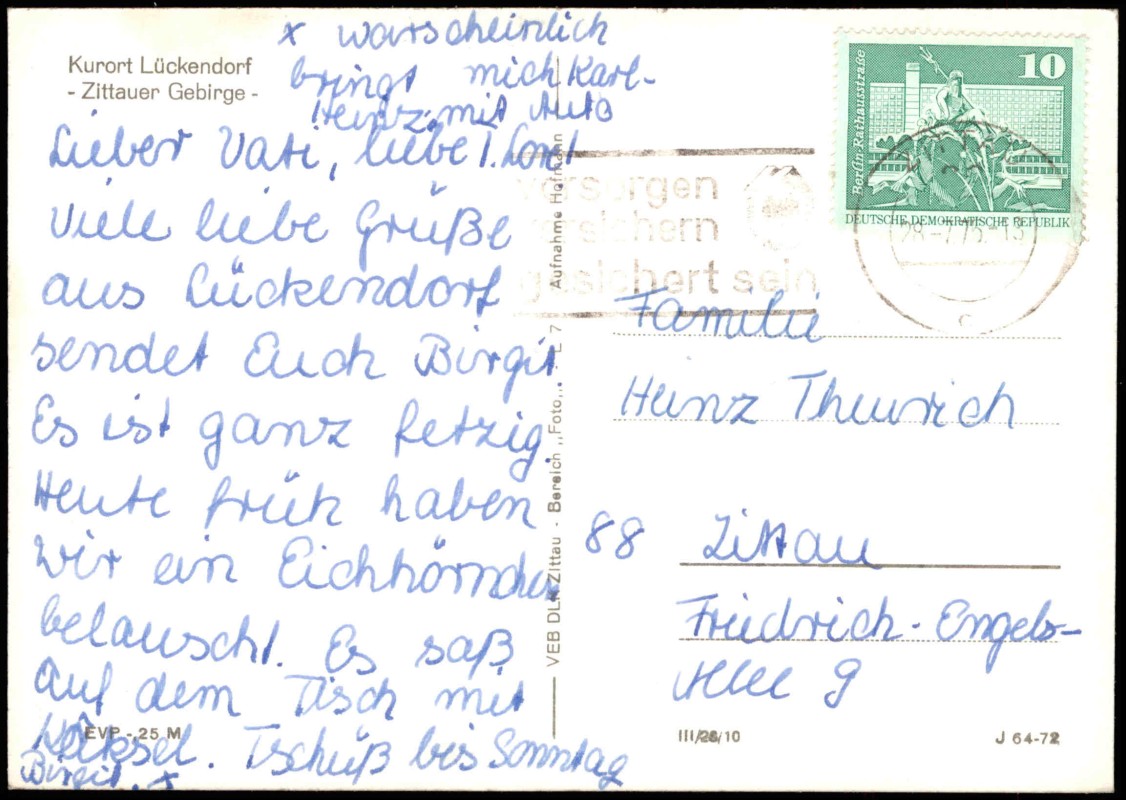 Kurort Lückendorf
- Zittauer Gebirge -
x warscheinlich
bringt mich Karl-
Heinz mit Auto
Lieber Vati, liebe
Viele liebe Grüße
aus Lückendorf
sendet Euch Birgit
Es ist ganz fetzig.
Heute früh haben
wir ein Eichhörnchen
belauscht. Es saß
auf dem Tisch mit
EVP -,25 M
Tschüß bis Sonntag
Birgit. x
VEB DLK Zittau - Bereich „Foto„ - E 7 Aufnahme Hofmann
10
Berlin Rathausstraße
DEUTSCHE DEMOKRATISCHE REPUBLIK
versichern
gesichert sein
c
Familie
Heinz Theurich
88 Zittau
Friedrich-Engels-
Allee 9
III/26/10
J 64-72